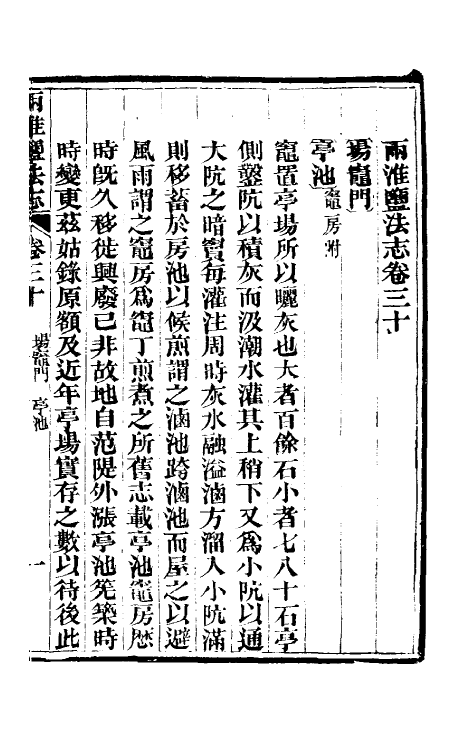 兩淮鹽法志卷三十
場竈門
亭池 竈房附
竈置亭場所以曬灰也大者百餘石小者七八十石亭
側鑿阬以積灰而汲潮水灌其上稍下又爲小阬以通
大阬之暗竇每灌注周時灰水融溢滷方溜入小阬滿
則移蓄於房池以候煎謂之滷池跨滷池而屋之以避
風雨謂之竈房爲竈丁煎煮之所舊志載亭池竈房歷
時旣久移徙興廢已非故地自范隄外漲亭池筅築時
時變東茲姑錄原額及近年亭場實存之數以待後此
兩淮鹽法志 卷三十 場竈門 亭池 一